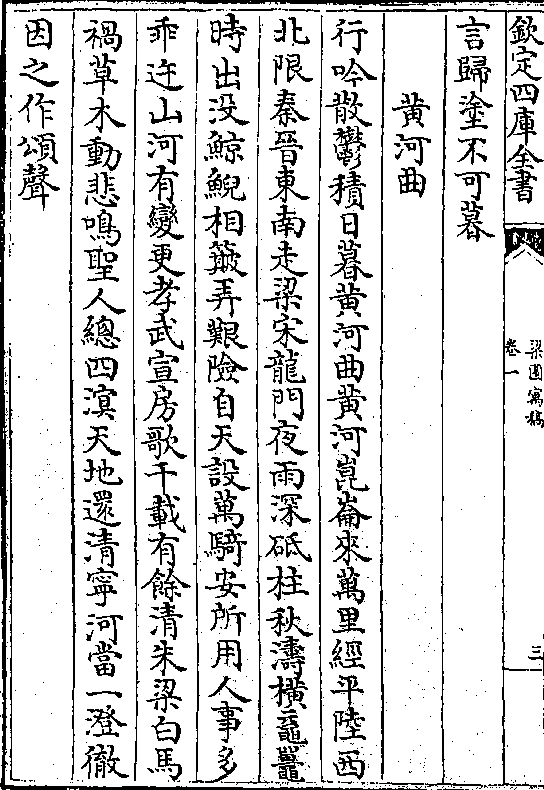 欽定四庫全書
梁園寓稿
卷一
三
言歸塗不可暮
黄河曲
行吟散鬱積日暮黄河曲黄河崑崙來萬里經平陸西
北限秦晉東南走梁宋龍門夜雨深砥柱秋濤橫黿鼉
時出没鯨鯢相簸弄艱險自天設萬騎安所用人事多
乖迕山河有變更孝武宣房歌千載有餘清朱梁白馬
禍草木動悲鳴聖人總四溟天地還清寧河當一澄徹
因之作頌聲